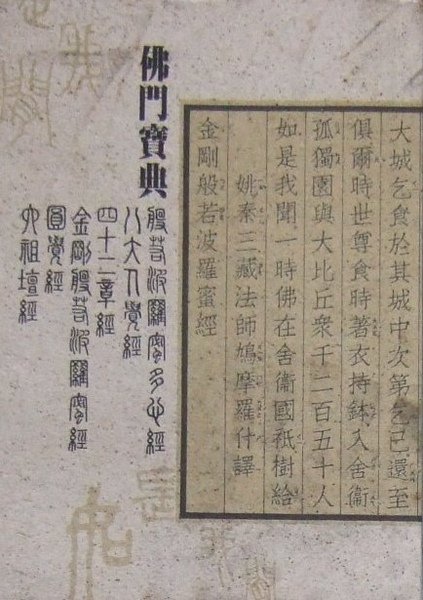 佛門寶典
般若波羅蜜多心經
八大人覺經
四十二章經
金剛般若波羅蜜經
圓覺經
六祖壇經
金剛般若波羅蜜經
姚秦三藏法師鳩摩羅什譯
如是我聞一時佛在舍衞國祇樹給
孤獨園與大比丘衆千二百五十人
俱爾時世尊食時著衣持鉢入舍衞
大城乞食於其城中次第乞已還至